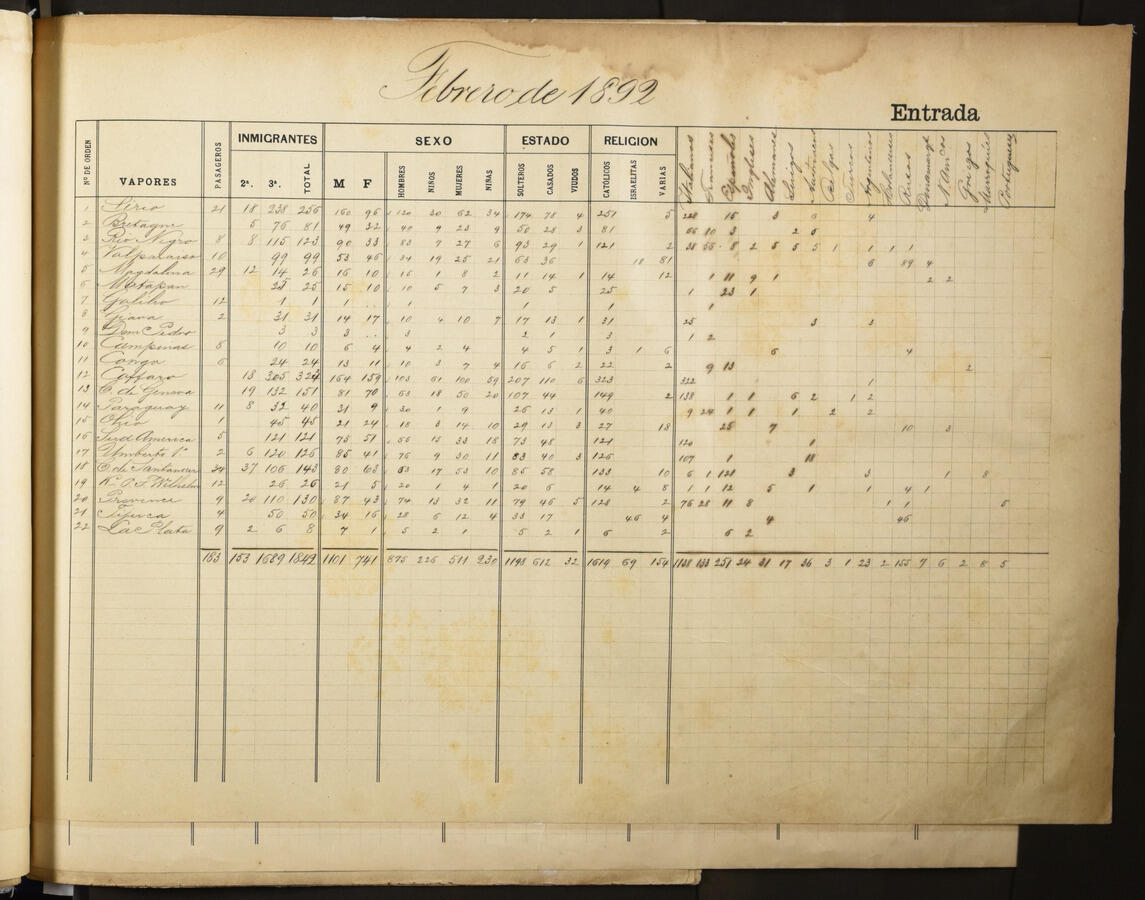 Febrero de 1892
Entrada
Nº DE ORDEN VAPORES PASAGEROS INMIGRANTES 2ª. 3ª. TOTAL SEXO M F HOMBRES NIÑOS MUJERES NIÑAS ESTADO SOLTEROS CASADOS VIUDOS RELIGION CATÓLICOS ISRAELITAS VARIAS Italianos Franceses Españoles Ingleses Alemanes Suizos Belgas Argentinos Holandeses Rusos Griegos Portugueses
1 21 18 238 256 160 96 120 30 62 34 174 78 4 251 5 228 15 3 6 4
2 Bretagne 5 76 81 49 32 40 9 23 9 50 28 3 81 66 10 3 2 5
3 Rio Negro 8 8 115 123 90 33 83 7 27 6 93 29 1 121 2 38 55 8 2 5 5 5 1 1 1 1
4 Valparaiso 10 99 99 53 46 34 19 25 21 63 36 18 81 6 89 4
5 Magdalena 29 12 14 26 16 10 15 1 8 2 11 14 1 14 12 1 11 9 1 2 2
6 Matapan 25 25 15 10 10 5 7 3 20 5 25 1 23 1
7 Galileo 12 1 1 1 1 1 1 1
8 2 31 31 14 17 10 4 10 7 17 13 1 31 25 3 3
9 Dom Pedro 3 3 3 3 2 1 3 1 2
10 Campinas 8 10 10 6 4 4 2 4 4 5 1 3 1 6 6 4
11 Congo 6 24 24 13 11 10 3 7 4 16 6 2 22 2 9 13 2
12 Caffaro 18 305 323 164 159 103 61 100 59 207 110 6 323 322 1
13 C. de Genova 19 132 151 81 70 63 18 50 20 107 44 149 2 138 1 1 6 2 1 2
14 Paraguay 11 8 32 40 31 9 30 1 9 26 13 1 40 9 24 1 1 1 2 2
15 Ohio 1 45 45 21 24 18 3 14 10 29 13 3 27 18 25 7 10 3
16 Sud America 5 121 121 73 48 121 120 1
17 Umberto 1º 2 6 120 126 85 41 76 9 30 11 83 40 3 126 107 1 18
18 C. de Santander 34 37 106 143 80 63 63 17 53 10 85 58 133 10 6 1 124 3 3 1 8
19 K. P. F. Wilhelm 12 26 26 21 5 20 1 4 1 20 6 14 4 8 1 1 12 5 1 1 4 1
20 Provence 9 20 110 130 87 43 74 13 32 11 79 46 5 128 2 76 28 11 8 1 1 5
21 Tijuca 4 50 50 34 16 28 6 12 4 33 17 46 4 4 46
22 La Plata 9 2 6 8 7 1 5 2 1 5 2 1 6 2 6 2
183 153 1689 1842 1101 741 875 226 511 230 1198 612 32 1619 69 154 1138 133 251 24 31 17 36 3 1 23 2 155 7 6 2 8 5